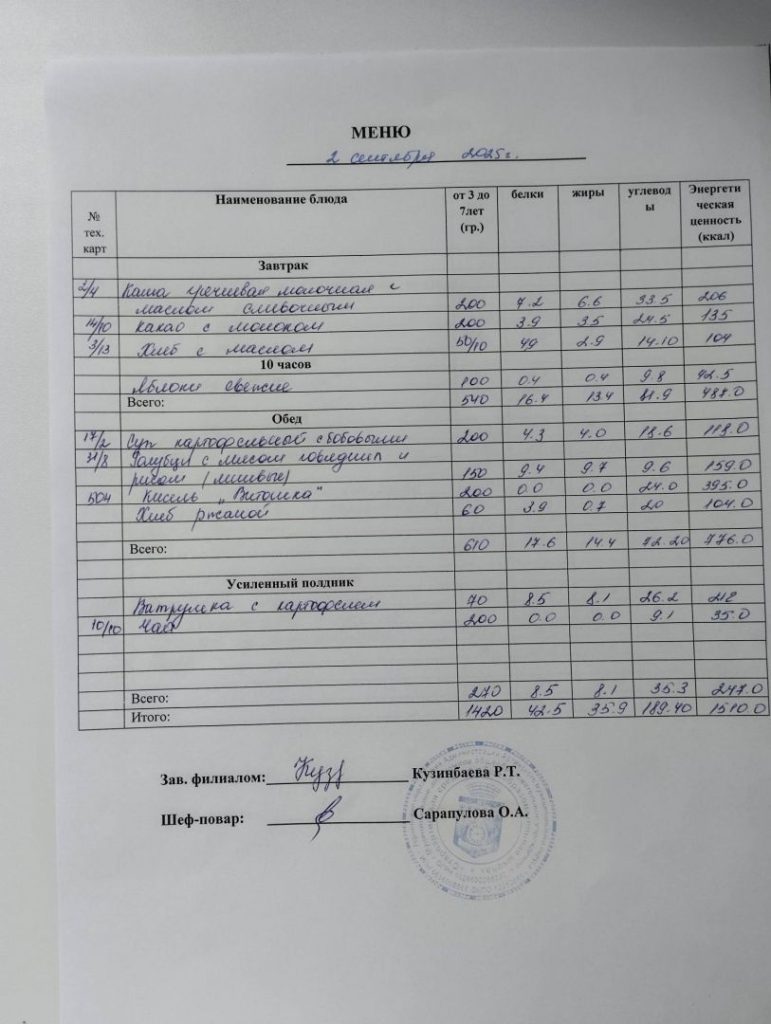 МЕНЮ
2 сентября 2025г.
№ тех. карт Наименование блюда от 3 до 7лет (гр.) белки жиры углеводы Энергетическая ценность (ккал)
Завтрак
2/4 Каша гречневая молочная с
маслом сливочным 200 7.2 6.6 33.5 206
14/10 Какао с молоком 200 3.9 3.5 24.5 135
3/13 Хлеб с маслом 50/10 49 2.9 14.10 104
10 часов
Яблоки свежие 100 0.4 0.4 9.8 42.5
Всего: 540 16.4 13.4 81.9 487.0
Обед
17/2 Суп картофельный с бобовыми 200 4.3 4.0 18.6 118.0
31/8 Голубцы с мясом говядины и
рисом (ленивые) 150 9.4 9.7 9.6 159.0
504 Кисель „Витошка" 200 0.0 0.0 24.0 395.0
Хлеб ржаной 60 3.9 0.7 20 104.0
Всего: 610 17.6 14.4 72.20 776.0
Усиленный полдник
Ватрушка с картофелем 70 8.5 8.1 26.2 212
10/10 Чай 200 0.0 0.0 9.1 35.0
Всего: 270 8.5 8.1 35.3 247.0
Итого: 1420 42.5 35.9 189.40 1510.0
Зав. филиалом: Кузинбаева Р.Т.
Шеф-повар: Сарапулова О.А.